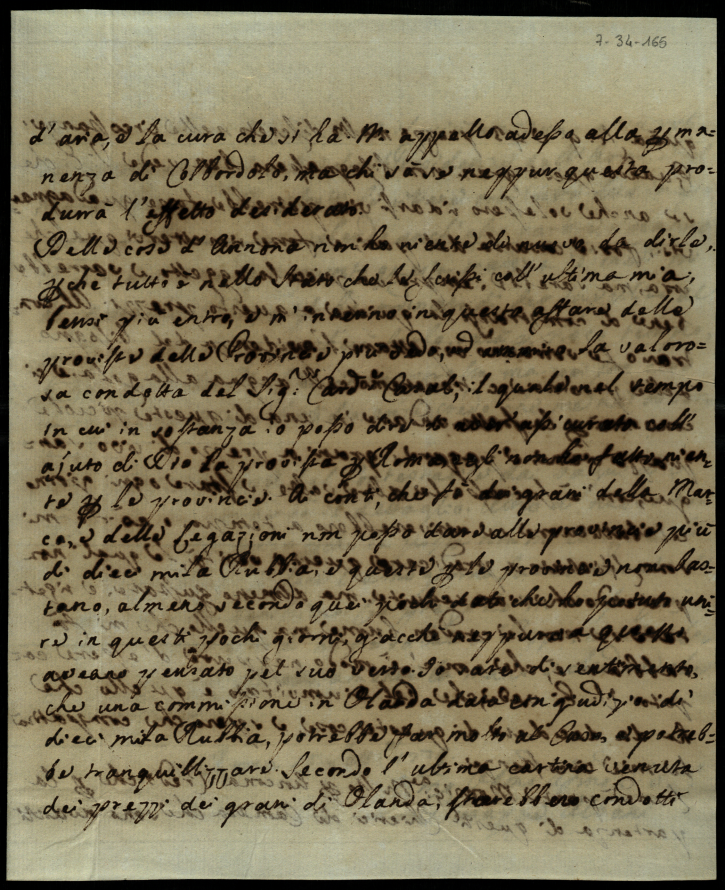 7-34-165
d'aria, e la cura che si fà. M'appello adesso alla ꝑma=
nenza di Colbordolo, ma chi sà se neppur questa pro=
durrà l'effetto desiderato.
Delle cose d'Annona non ho niente di nuovo da dirle,
ꝑche tutto è nello stato che le scrissi coll'ultima mia,
bensì più entro, e m'interno in questo affare delle
proviste delle Provincie più vedo, ed la valoro=
sa condotta del Sig.r Card. il quale nel tempo
in cui in sostanza io posso dire d'aver assicurato coll'
ajuto di Dio la provista ꝑ Roma egli non ha fatto nien=
te ꝑ le provincie. Ai conti, che fò dei grani della Mar=
ca, e delle Legazioni non posso dare alle provincie più
di dieci mila Rubbia, e queste ꝑ le provincie non bas=
tano, almeno secondo que' pochi dati che ho potuto uni=
re in questi pochi giorni, giacchè neppure a
aveano pensato pel suo verso. Io sarei di sentimento,
che una commissione in Olanda data con giudizio di
dieci mila Rubbia, potrebbe far molto al caso, e potreb=
be tranquillizzare. Secondo l'ultima cartina venuta
dei prezzi dei grani di Olanda, starebbero condotti